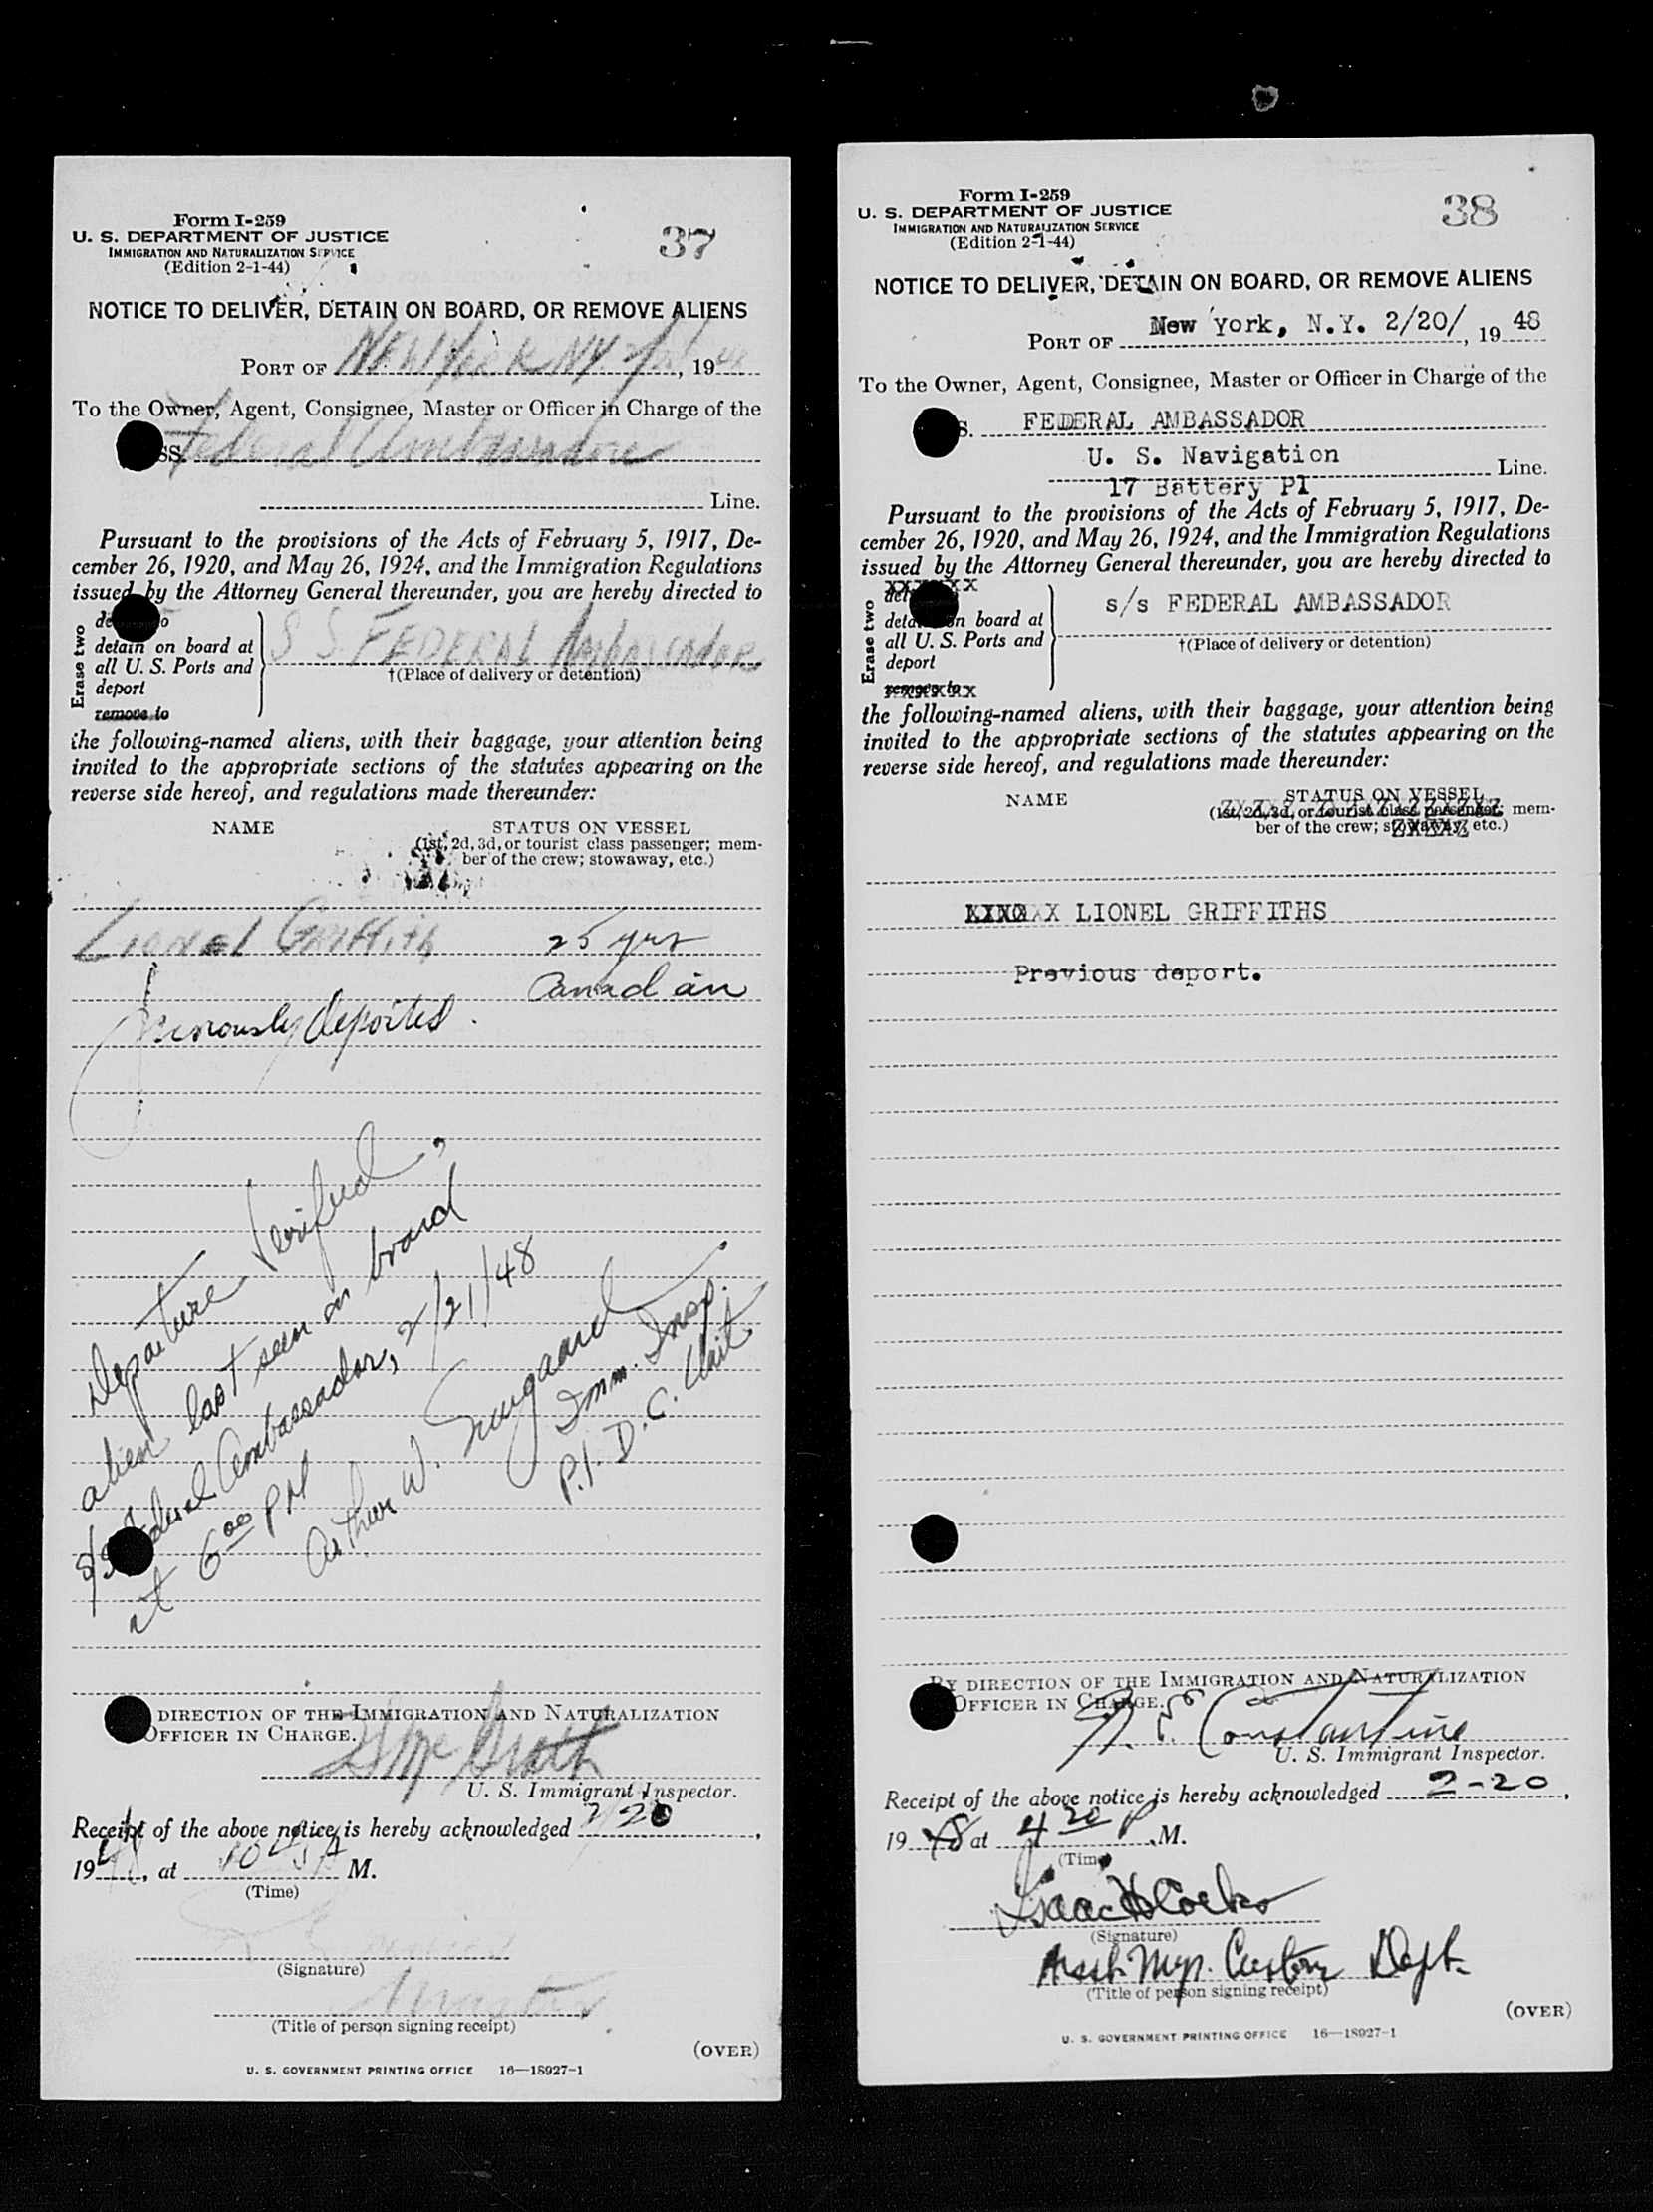 Form I-259
U. S. DEPARTMENT OF JUSTICE
IMMIGRATION AND NATURALIZATION SERVICE
(Edition 2-1-44)
37
NOTICE TO DELIVER, DETAIN ON BOARD, OR REMOVE ALIENS
PORT OF NEW YORK NY , 19 48
To the Owner, Agent, Consignee, Master or Officer in Charge of the
SS. Federal Ambassador
Line.
Pursuant to the provisions of the Acts of February 5, 1917, De-
cember 26, 1920, and May 26, 1924, and the Immigration Regulations
issued by the Attorney General thereunder, you are hereby directed to
Erase two
detain on board at
all U. S. Ports and
deport
remove to
S S. FEDERAL Ambassador
†(Place of delivery or detention)
the following-named aliens, with their baggage, your attention being
invited to the appropriate sections of the statutes appearing on the
reverse side hereof, and regulations made thereunder:
NAME STATUS ON VESSEL
(1st, 2d, 3d, or tourist class passenger; mem-
ber of the crew; stowaway, etc.)
Lionel Griffith 25 yrs
Canadian
Previously deported.
Departure Verified,
alien last seen on board
s/s Federal Ambassador, 2/21/48
at 6 00 PM
Arthur W.
Imm. Insp.
P.I. D.C. Unit
DIRECTION OF THE IMMIGRATION AND NATURALIZATION
OFFICER IN CHARGE.
U. S. Immigrant Inspector.
Receipt of the above notice is hereby acknowledged 2/20,
19 48, at M.
(Time)
(Signature)
Master
(Title of person signing receipt)
(OVER)
U. S. GOVERNMENT PRINTING OFFICE 16—18927-1
Form I-259
U. S. DEPARTMENT OF JUSTICE
IMMIGRATION AND NATURALIZATION SERVICE
(Edition 2-1-44)
38
NOTICE TO DELIVER, DETAIN ON BOARD, OR REMOVE ALIENS
PORT OF New York, N.Y. 2/20/, 19 48
To the Owner, Agent, Consignee, Master or Officer in Charge of the
S. FEDERAL AMBASSADOR
U. S. Navigation Line.
17 Battery Pl
Pursuant to the provisions of the Acts of February 5, 1917, De-
cember 26, 1920, and May 26, 1924, and the Immigration Regulations
issued by the Attorney General thereunder, you are hereby directed to
Erase two
detain on board at
all U. S. Ports and
deport
remove to
s/s FEDERAL AMBASSADOR
†(Place of delivery or detention)
the following-named aliens, with their baggage, your attention being
invited to the appropriate sections of the statutes appearing on the
reverse side hereof, and regulations made thereunder:
NAME STATUS ON VESSEL
(1st, 2d, 3d, or tourist class passenger; mem-
ber of the crew; stowaway, etc.)
LIONEL GRIFFITHS
Previous deport.
BY DIRECTION OF THE IMMIGRATION AND NATURALIZATION
OFFICER IN CHARGE.
Constantine
U. S. Immigrant Inspector.
Receipt of the above notice is hereby acknowledged 2-20,
19 48 at 4 20 P.M.
(Time)
Isaac H Cocks
(Signature)
Asst. Mgr. Customs Dept.
(Title of person signing receipt)
(OVER)
U. S. GOVERNMENT PRINTING OFFICE 16—18927-1